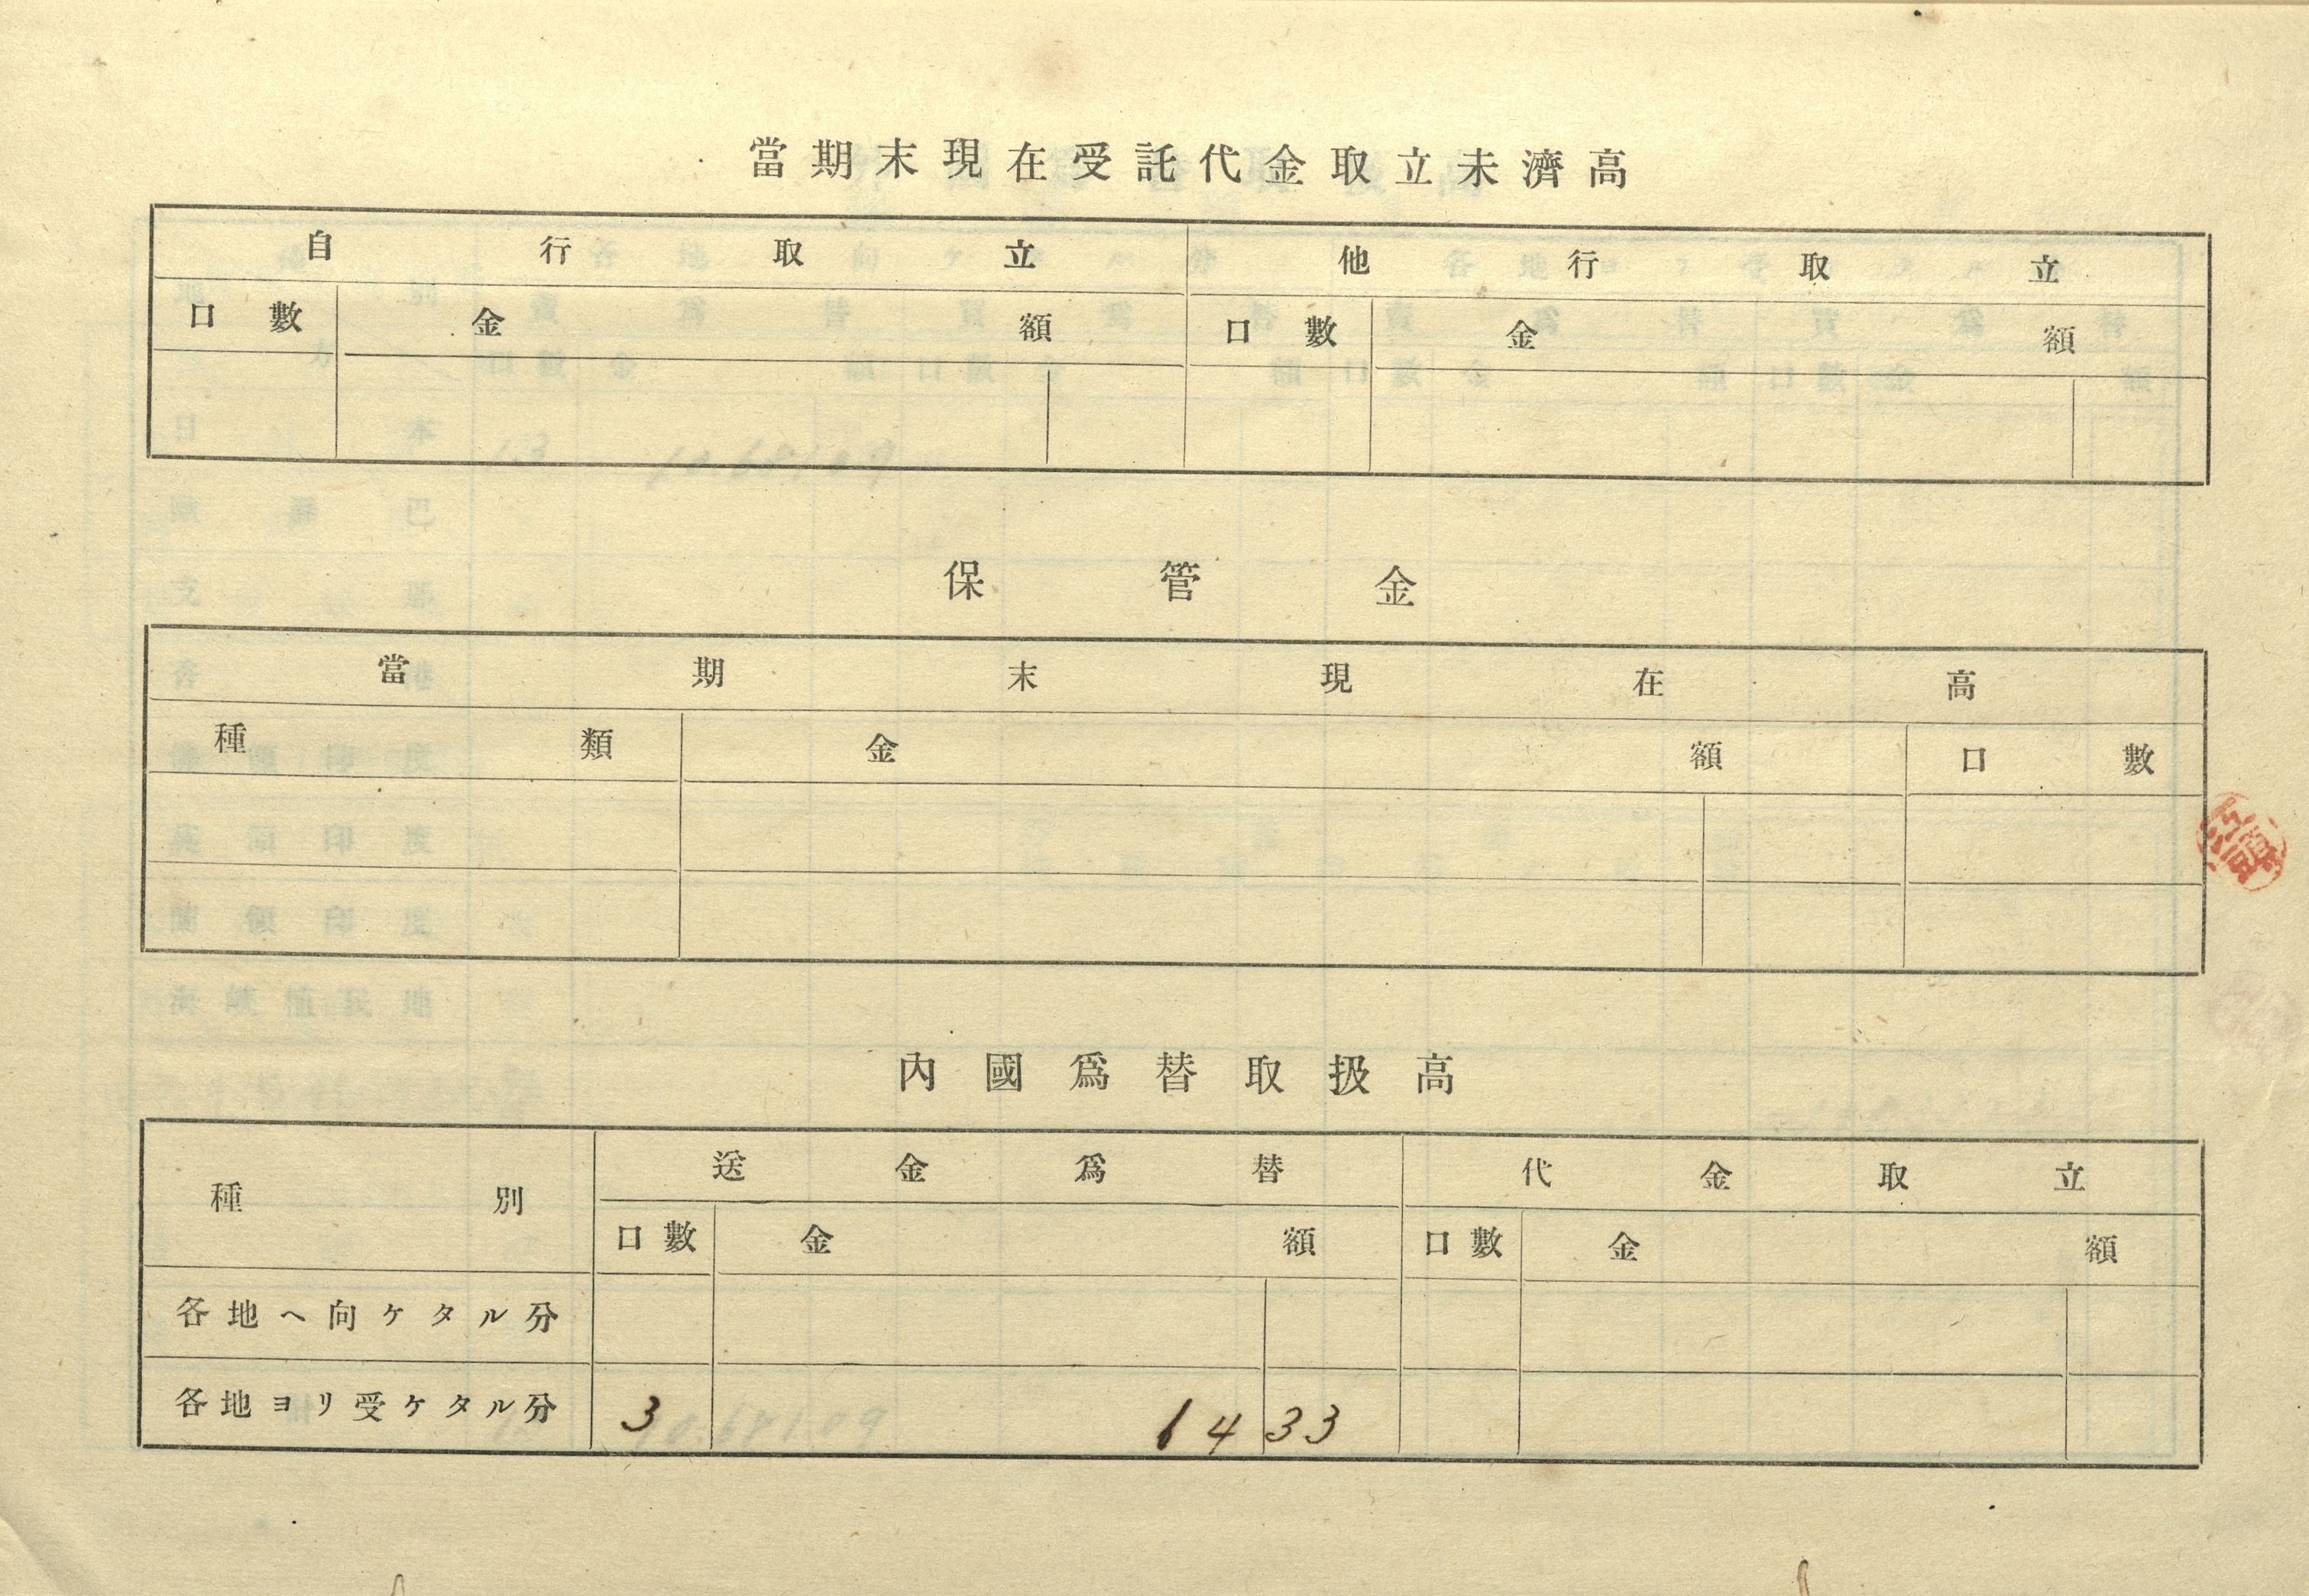 當期末現在受託代金取立未濟高
自行取立 他行取立
口數 金額 口數 金額
保管金
當期末現在高
種類 金額 口數
內國爲替取扱高
種別 送金爲替 代金取立
口數 金額 口數 金額
各地ヘ向ケタル分
各地ヨリ受ケタル分 3 64 33